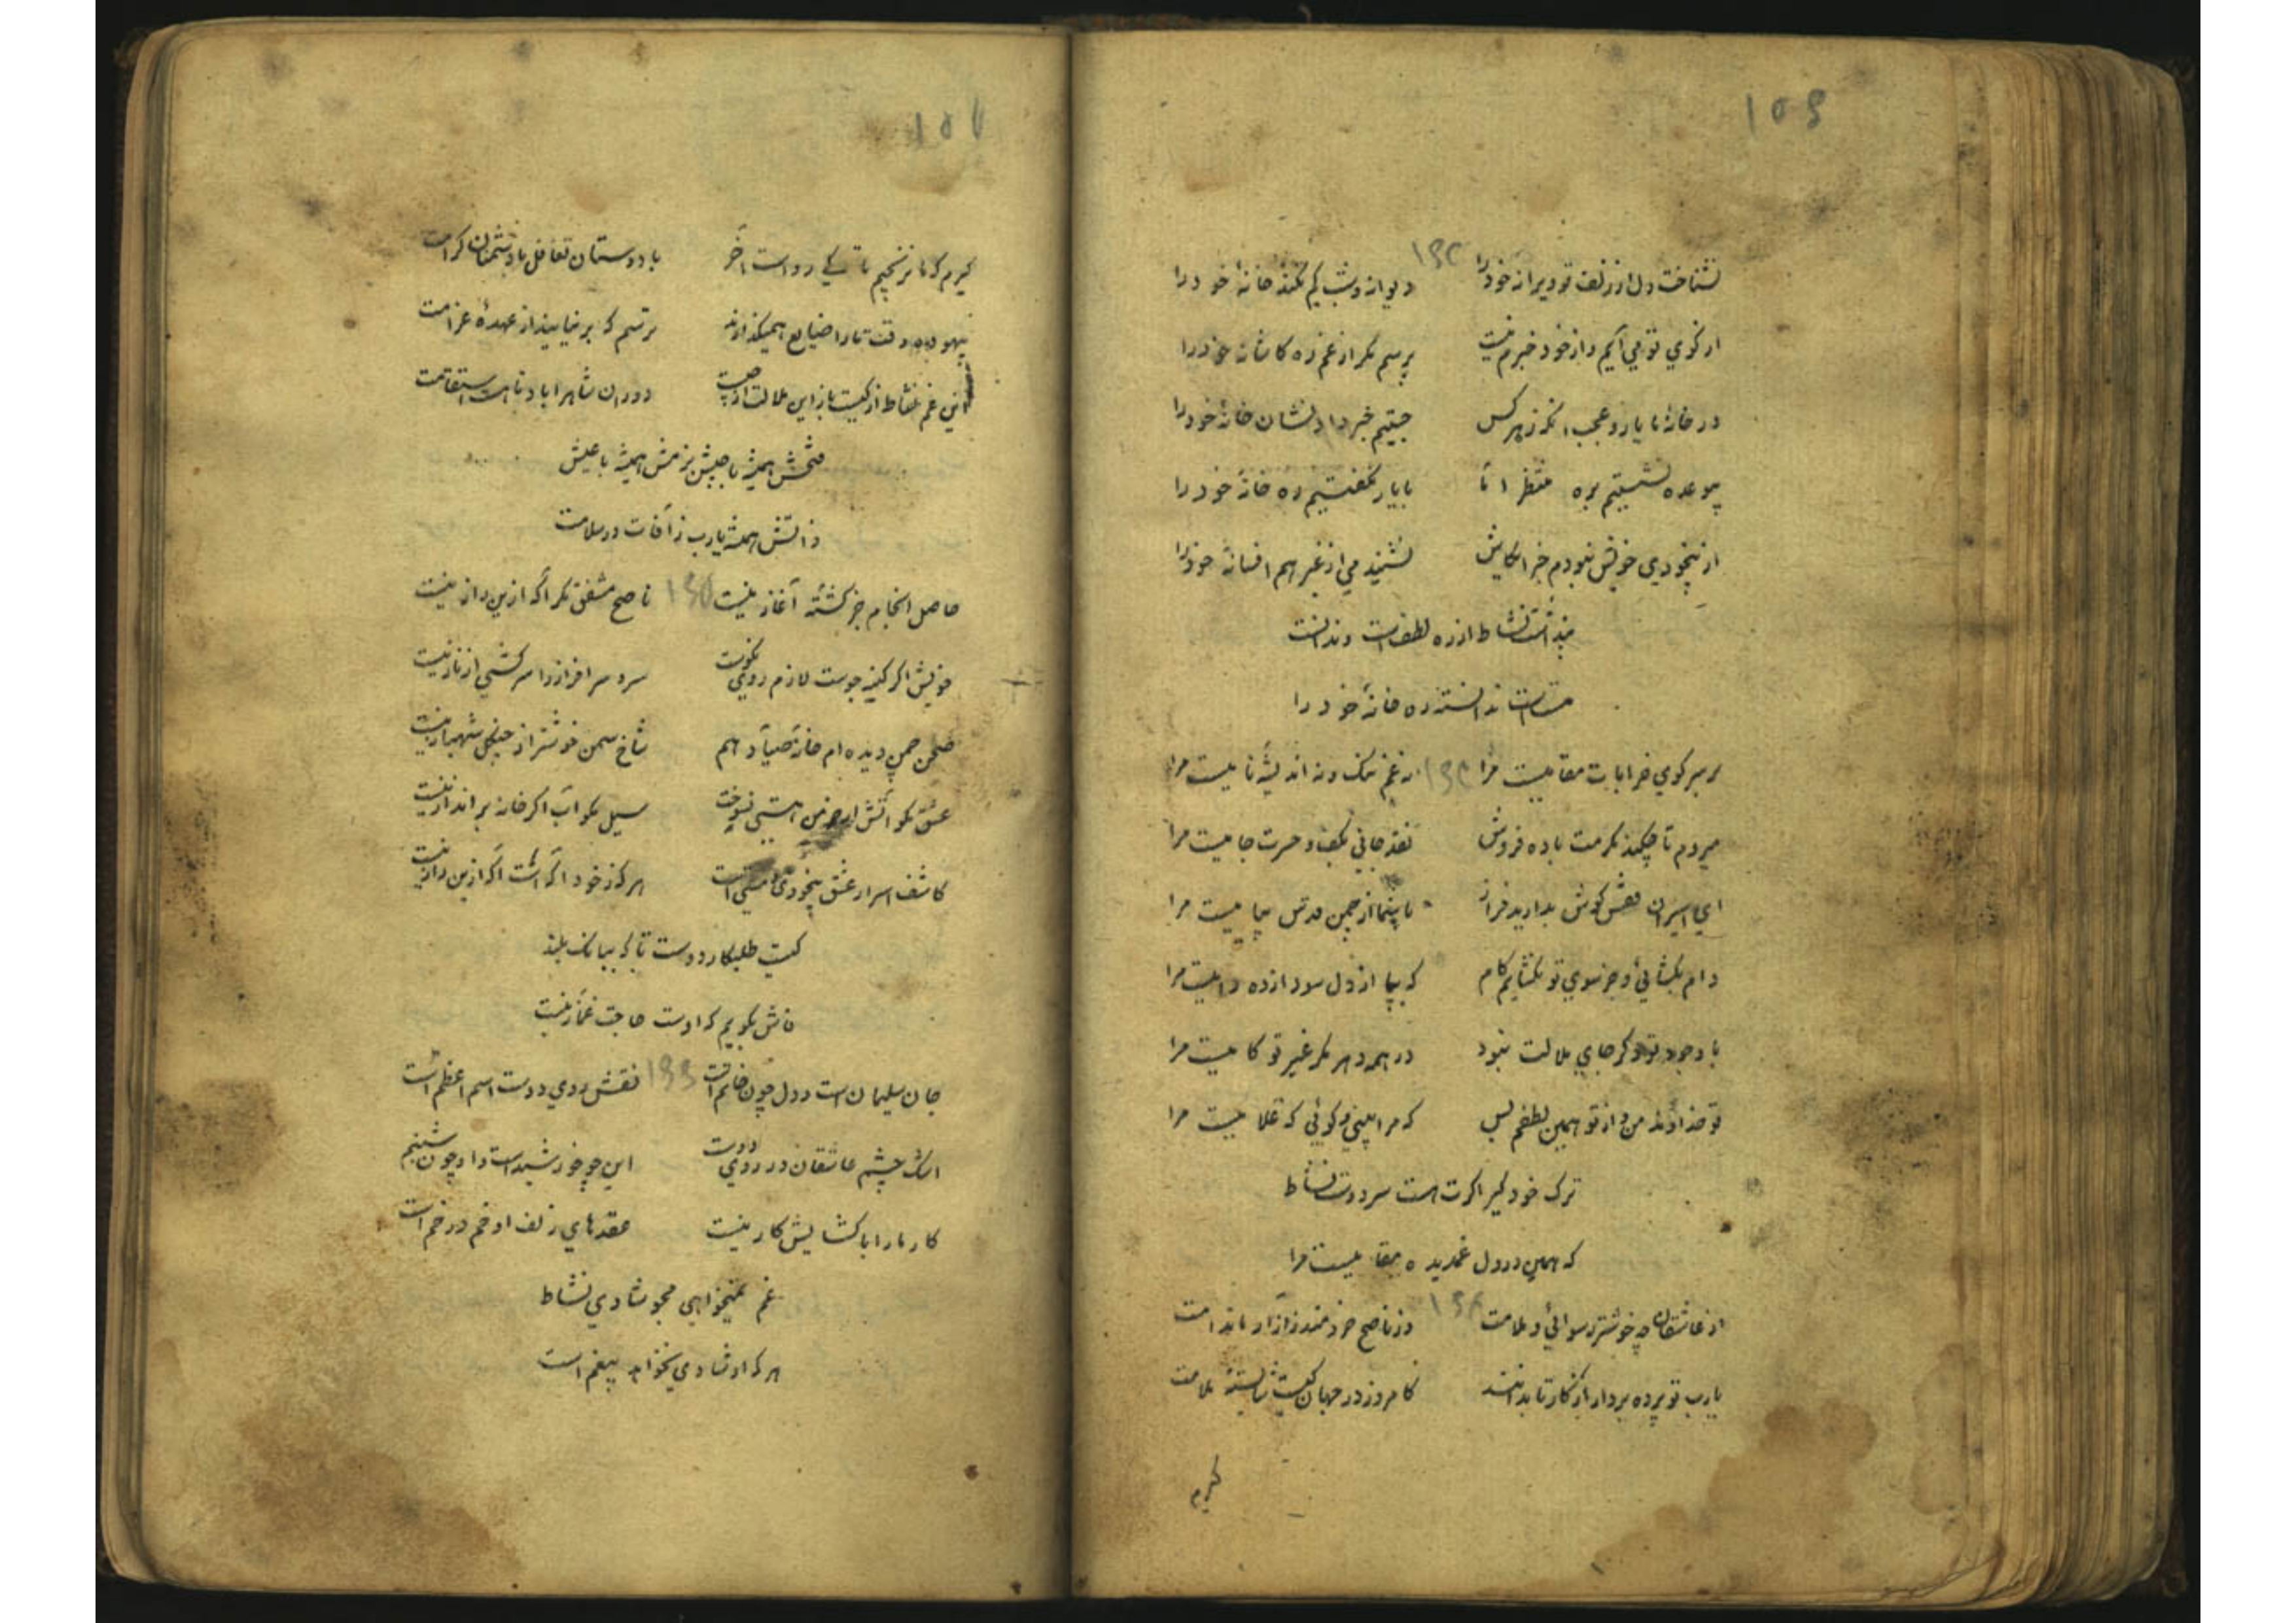 ۱۵۶
نشناخت دل از زلف تو ویرانه خود را ۱۶۲ دیوانه و شب گم نکند خانهٔ خود را
از کوی تو می آیم و از خود خبرم نیست پرسم مگر از غم ره کاشانهٔ خود را
در خانهٔ ما یار و عجب انکه ز هر کس جستیم خبر دار نشان خانهٔ خود را
بوعده نشستیم بره منتظر اما با یار نگفتیم ره خانهٔ خود را
از بیخودی خویش نبودم خبر ای کاش نشنیدمی از غیر هم افسانهٔ خود را
پنداشت نشاط از ره لطف است و ندانست
مست است ندانسته ره خانهٔ خود را
بر سر کوی خرابات مقامیست مرا ۱۶۳ نه غم ننگ و نه اندیشهٔ نامیست مرا
میروم تا چکند مکرمت باده فروش نقد جانی بکف و حسرت جامیست مرا
ای اسیران قفس گوش بدارید فراز با شما از چمن قدس پیامیست مرا
دام بگشائی و جز سوی تو نگشایم گام که بپا از دل سودازده دامیست مرا
با وجود تو دگر جای ملالت نبود در همه دهر مگر غیر تو کامیست مرا
تو خداوند من و از تو همین لطفم بس که مرا بینی و گوئی که غلامیست مرا
ترک خود گیر اگرت هست سر دوست نشاط
که همین در دل غمدیده مقامیست مرا
از عاشقان چه خوشتر رسوائی و ملامت ۱۶۴ وز ناصح خردمند ز آزار ما ندامت
یارب تو پرده بردار از کار تا بدانند کامروز در جهان کیست شایستهٔ ملامت
گیرم
۱۵۷
گیرم که ما نرنجیم تا کی رواست آخر با دوستان تغافل با دشمنان کرامت
بیهوده وقت ما را ضایع همیگذارند ترسم که بر نیایند از عهدهٔ غرامت
این غم نشاط از کیست باز این ملالت از چیست دوران شاه را باد تا هست استقامت
جیشش همیشه با عیش
ذاتش همیشه یارب ز آفات در سلامت
حاصل انجام جز گشتهٔ آغاز نیست ۱۶۵ ناصح مشفق مگر آگه ازین راز نیست
خویش اگر کینه جوست لازم روی نکوست سرو سرافراز را سرکشی از ناز نیست
صحن چمن دیده ام خانهٔ صیاد هم شاخ سمن خوشتر از چنگل شهباز نیست
عشق مگو آتش ار خرمن هستی نسوخت سیل مگو آب اگر خانه برانداز نیست
کاشف اسرار عشق بیخودی و مستی است هر که ز خود آگه است آگه ازین راز نیست
کیست طلبکار دوست تا که ببانگ بلند
فاش بگویم که اوست حاجت غماز نیست
جان سلیمان است و دل چون خاتم است ۱۶۶ نقش روی دوست اسم اعظم است
اشک چشم عاشقان در روی دوست این چو خورشید است و او چون شبنم است
کار ما را با گشایش کار نیست عقدهای زلف او خم در خم است
غم نمیخواهی مجو شادی نشاط
هر که او شادی نخواهد بیغم است